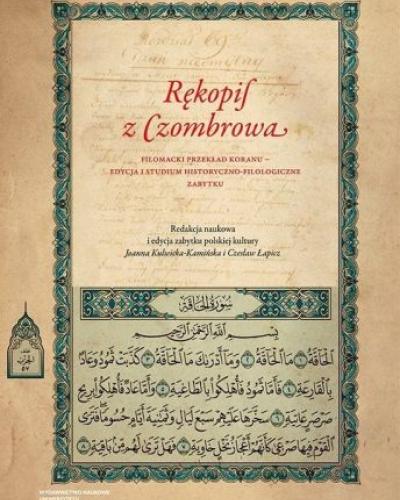 Rozdział 69
Rękopiſ
z Czombrowa
FILOMACKI PRZEKŁAD KORANU –
EDYCJA I STUDIUM HISTORYCZNO-FILOLOGICZNE
ZABYTKU
Redakcja naukowa
i edycja zabytku polskiej kultury
Joanna Kulwicka-Kamińska i Czesław Łapicz
سُورَةُ الْحَاقَّةِ
بِسْمِ اللَّهِ الرَّحْمَٰنِ الرَّحِيمِ
الْحَاقَّةُ ١ مَا الْحَاقَّةُ ٢ وَمَا أَدْرَىٰكَ مَا الْحَاقَّةُ ٣ كَذَّبَتْ ثَمُودُ وَعَادٌ
بِالْقَارِعَةِ ٤ فَأَمَّا ثَمُودُ فَأُهْلِكُوا بِالطَّاغِيَةِ ٥ وَأَمَّا عَادٌ فَأُهْلِكُوا بِرِيحٍ
صَرْصَرٍ عَاتِيَةٍ ٦ سَخَّرَهَا عَلَيْهِمْ سَبْعَ لَيَالٍ وَثَمَٰنِيَةَ أَيَّامٍ حُسُومًا فَتَرَى
الْقَوْمَ فِيهَا صَرْعَىٰ كَأَنَّهُمْ أَعْجَازُ نَخْلٍ خَاوِيَةٍ ٧ فَهَلْ تَرَىٰ لَهُمْ مِنْ بَاقِيَةٍ ٨
الحزب
٥٧
WYDAWNICTWO NAUKOWE